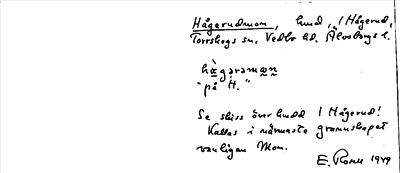 Hågerudmon, hmd, i Hågerud,
Torrskogs sn, Vedbo hd. Älvsborgs l.
hå̀gərəmæn
"på H."
Se skiss över hmdd i Hågerud!
Kallas i närmaste grannskapet
vanligen Mon.
E. Rosell 1949